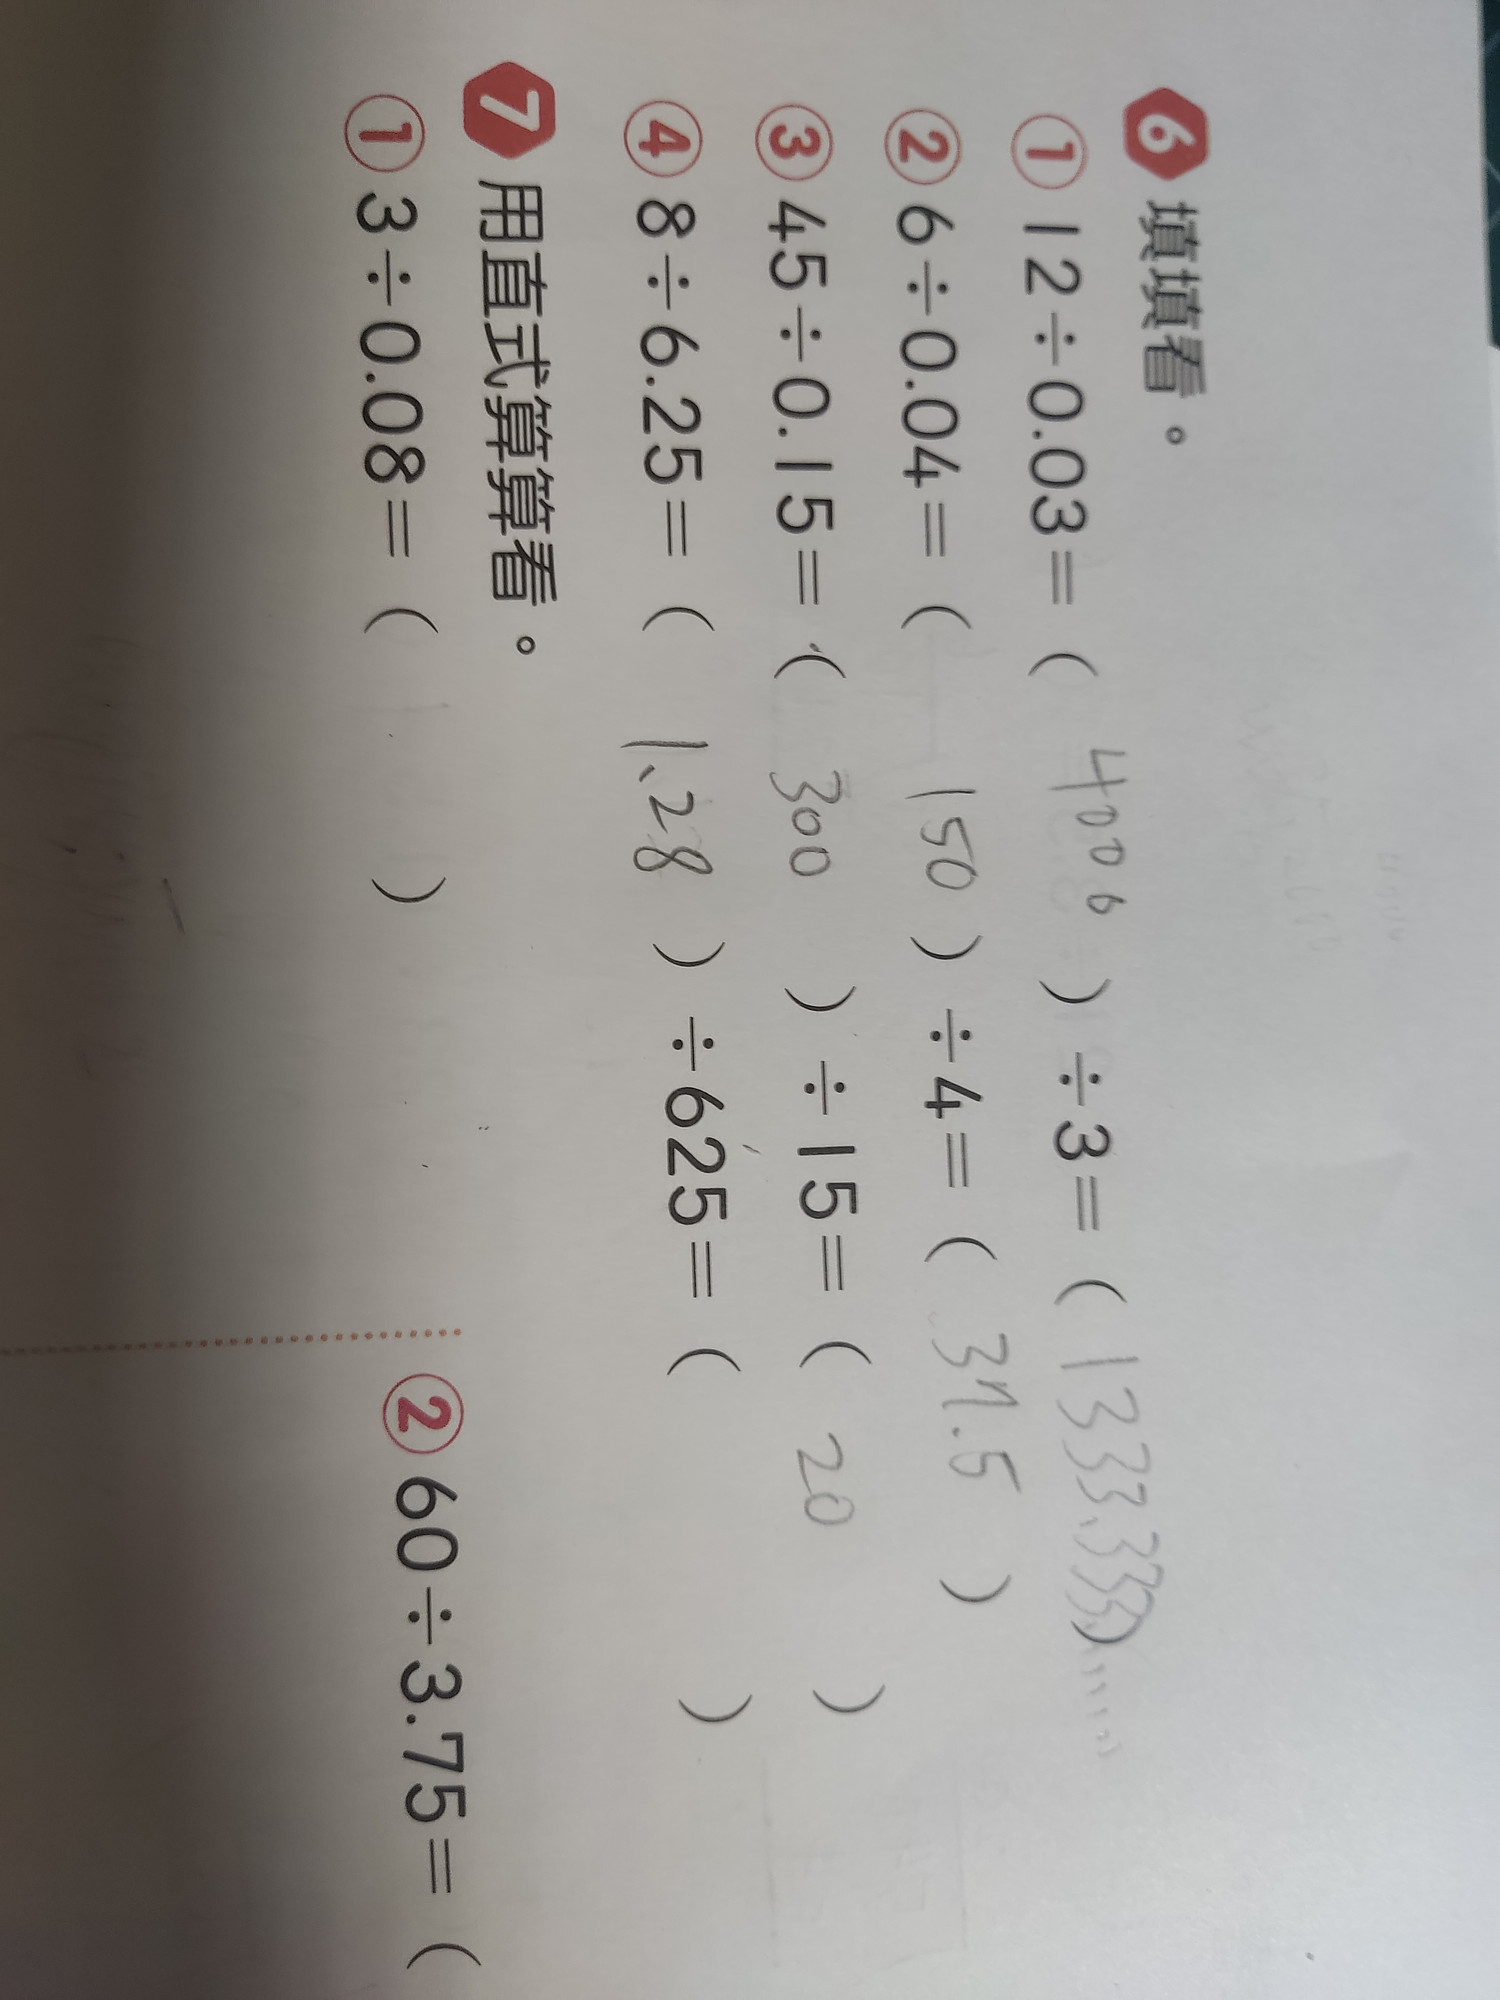 6 填填看。
① 12÷0.03=( 4000 )÷3=( 1333.333)......
② 6÷0.04=( 150 )÷4=( 37.5 )
③ 45÷0.15=( 300 )÷15=( 20 )
④ 8÷6.25=( 1.28 )÷625=( )
7 用直式算算看。
① 3÷0.08=( )
② 60÷3.75=(